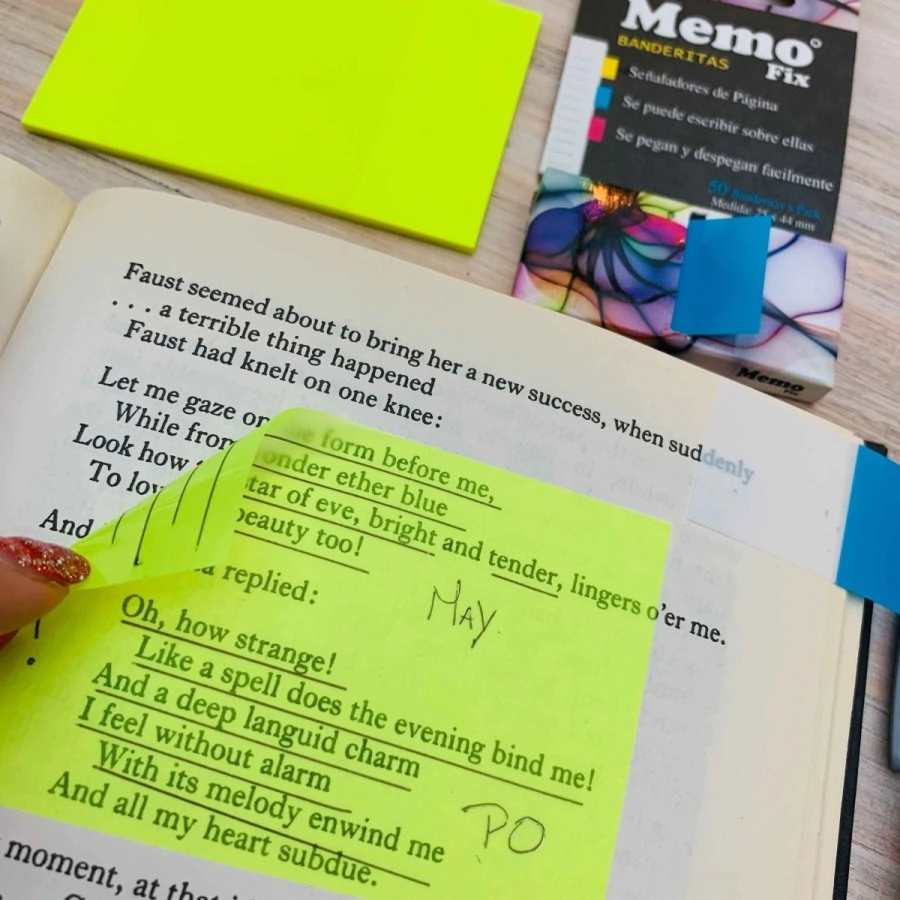 Memo
BANDERITAS
Fix
Señaladores de Página
Se puede escribir sobre ellas
Se pegan y despegan facilmente
50 Banderitas x Pack
Medida: 25 x 44 mm
Memo
Fix
Faust seemed about to bring her a new success, when suddenly
. . . a terrible thing happened
Faust had knelt on one knee:
Let me gaze on form before me,
While from ether blue
Look how of eve, bright and tender, lingers o'er me.
To beauty too!
And replied:
MAY
Oh, how strange!
Like a spell does the evening bind me!
And a deep languid charm
I feel without alarm
With its melody enwind me
And all my heart subdue.
PO
moment, at that